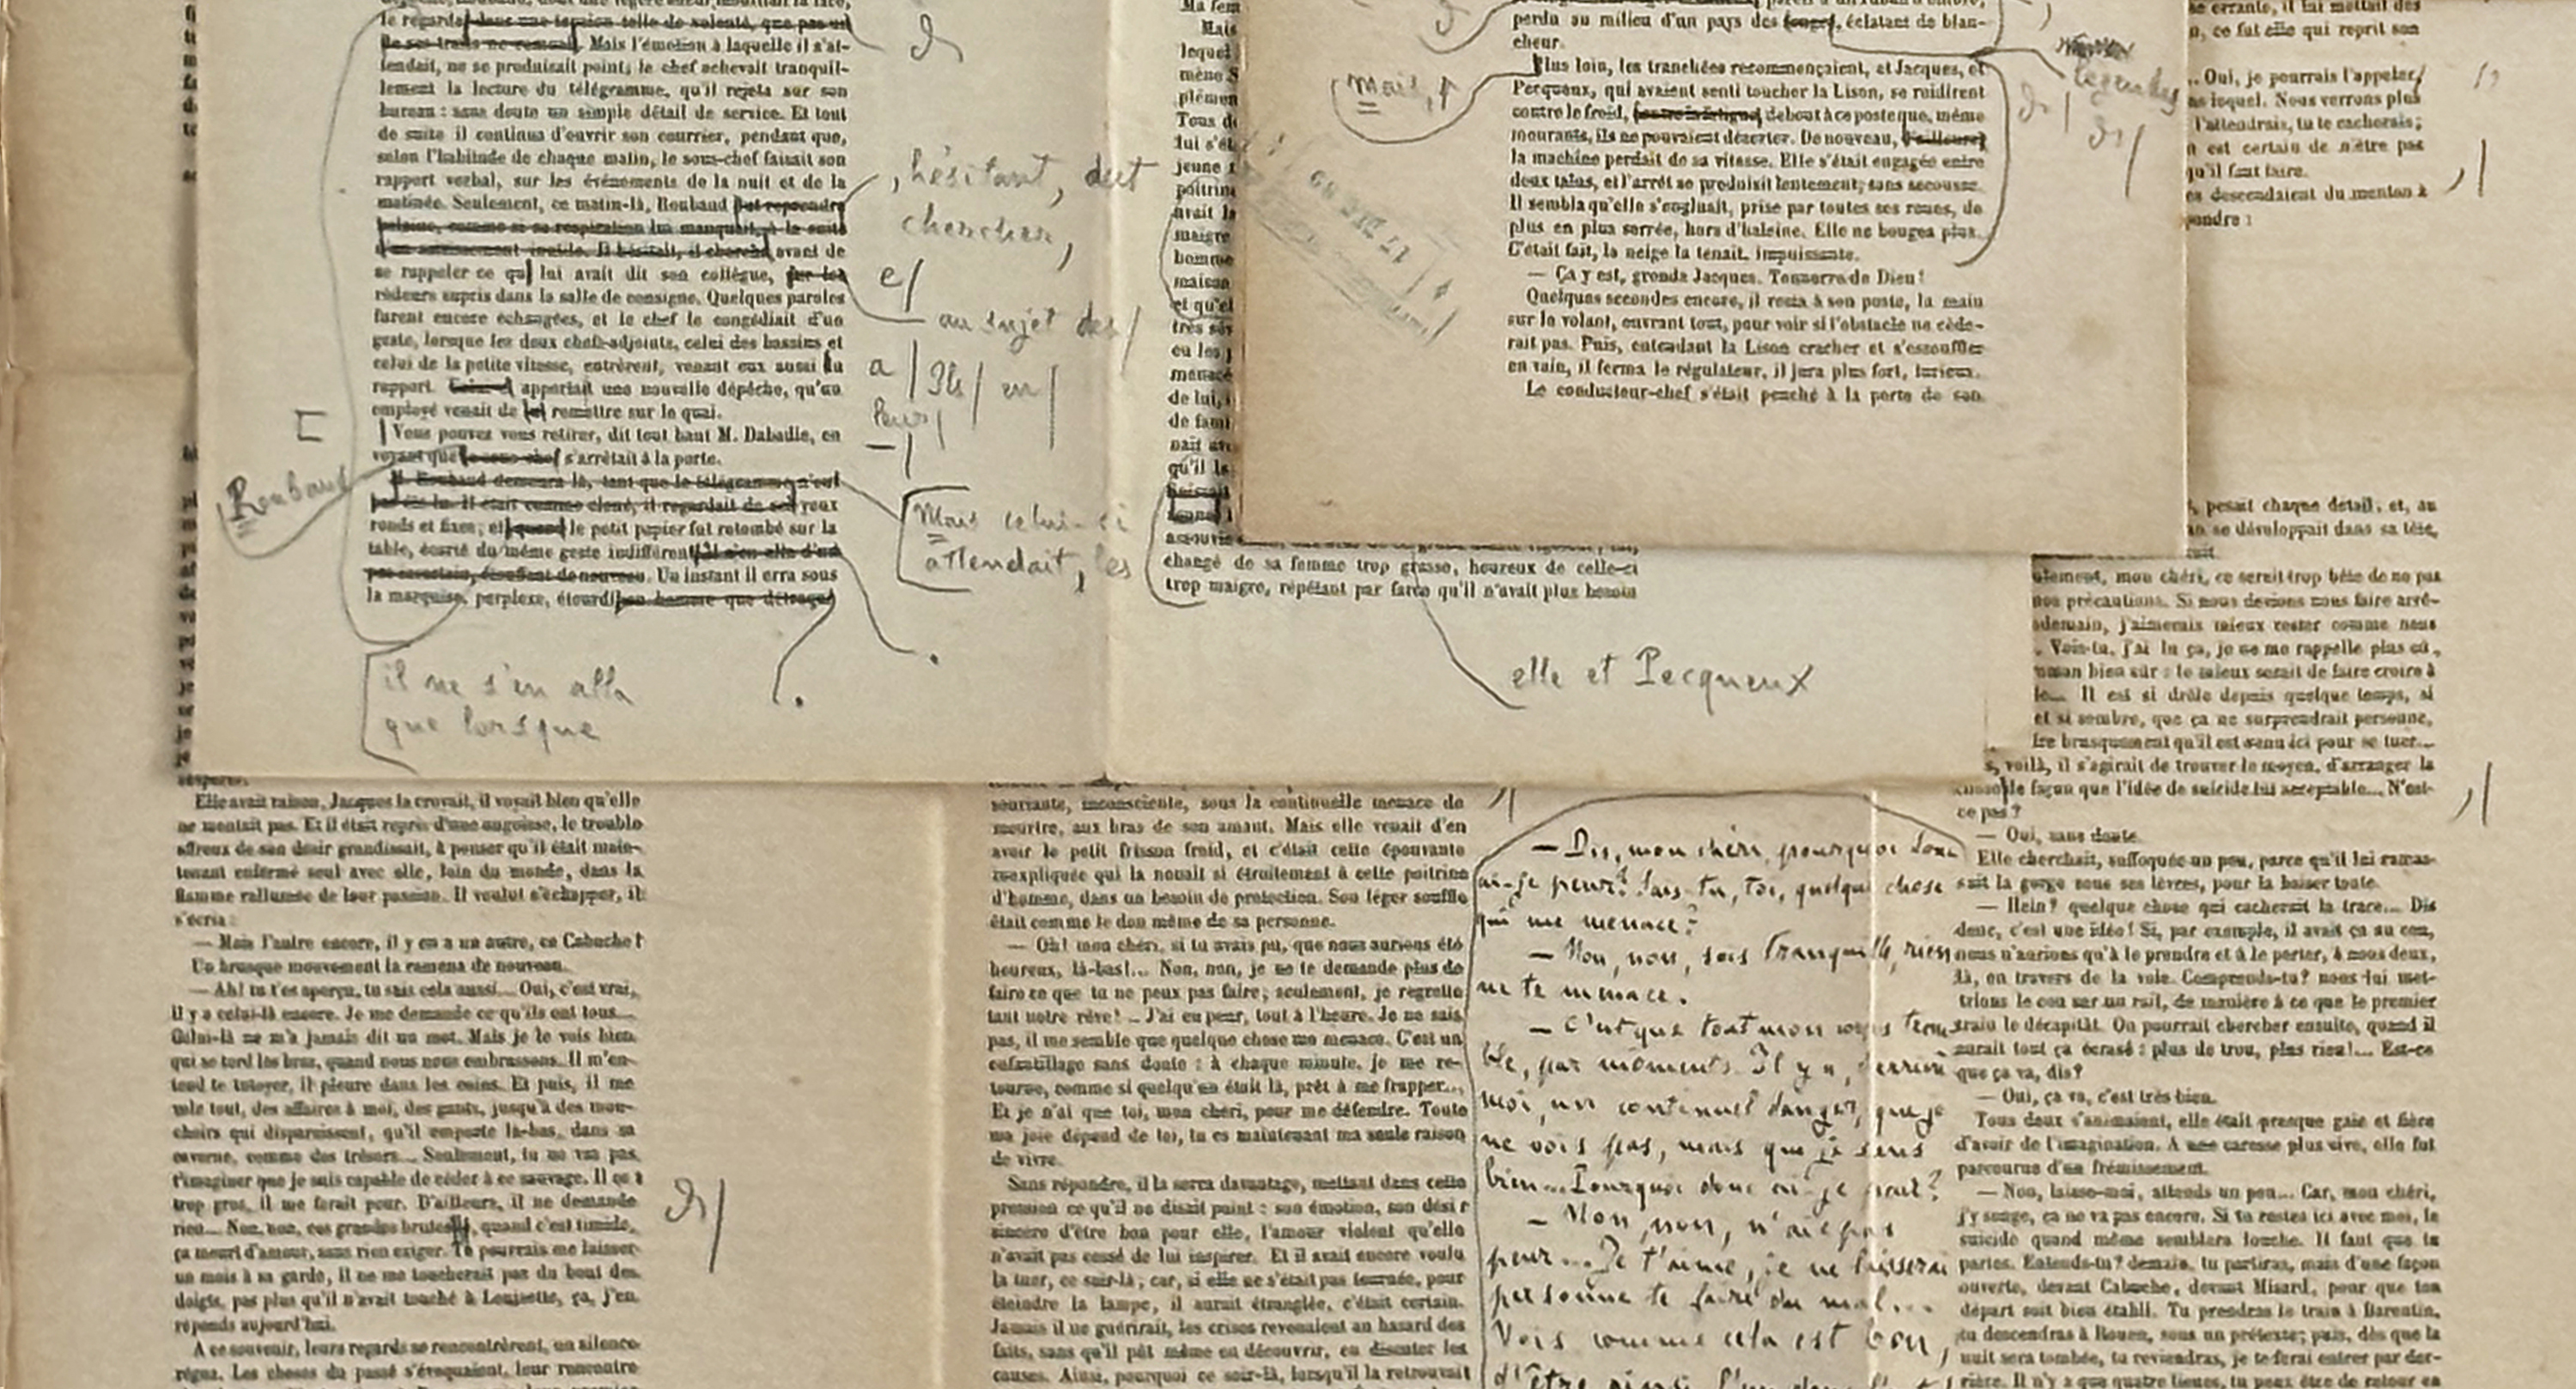 le regarda dans une tension telle de volonté, que pas un
de ses traits ne remuait. Mais l'émotion à laquelle il s'at-
tendait, ne se produisait point; le chef achevait tranquil-
lement la lecture du télégramme, qu'il rejeta sur son
bureau : sans doute un simple détail de service. Et tout
de suite il continua d'ouvrir son courrier, pendant que,
selon l'habitude de chaque matin, le sous-chef faisait son
rapport verbal, sur les événements de la nuit et de la
matinée. Seulement, ce matin-là, Roubaud dut reprendre
haleine, comme si sa respiration lui manquait, à la suite
Il hésitait, il chercha avant de
se rappeler ce qu lui avait dit son collègue, sur les
rôdeurs surpris dans la salle de consigne. Quelques paroles
furent encore échangées, et le chef le congédiait d'un
geste, lorsque les deux chefs-adjoints, celui des bassins et
celui de la petite vitesse, entrèrent, venant eux aussi du
rapport. apportait une nouvelle dépêche, qu'un
employé venait de lui remettre sur le quai.
Vous pouvez vous retirer, dit tout haut M. Dabadie, en
voyant que le sous-chef s'arrêtait à la porte.
M. Roubaud demeura là, tant que le télégramme n'eut
pas été lu. Il était comme cloué, il regardait de ses yeux
ronds et fixes; et quand le petit papier fut retombé sur la
table, écarté du même geste indifférent, il s'en alla d'un
pas incertain, étouffant de nouveau. Un instant il erra sous
la marquise, perplexe, étourdi, en homme que détraque
, hésitant, dut
chercher,
e/
au sujet des/
a/ Ils/ en/
leur/
—/
Roubaud
Mais celui-ci
attendait, les
il ne s'en alla
que lorsque
Ma fem
Mais
lequel
mène S
plémen
Tous de
lui s'ét
jeune
poitrine
avait la
maigre
homme
maison
et qu'el
très sév
eu les
menacé
de lui,
de fami
nait ave
qu'il la
changé de sa femme trop grasse, heureux de celle-ci
trop maigre, répétant par farce qu'il n'avait plus besoin
elle et Pecqueux
perdu au milieu d'un pays des songes, éclatant de blan-
cheur.
Plus loin, les tranchées recommençaient, et Jacques, et
Pecqueux, qui avaient senti toucher la Lison, se raidirent
contre le froid, contre la fatigue, debout à ce poste que, même
mourants, ils ne pouvaient déserter. De nouveau, d'ailleurs,
la machine perdait de sa vitesse. Elle s'était engagée entre
deux talus, et l'arrêt se produisit lentement, sans secousse.
Il sembla qu'elle s'engluait, prise par toutes ses roues, de
plus en plus serrée, hors d'haleine. Elle ne bougea plus.
C'était fait, la neige la tenait, impuissante.
— Ça y est, gronda Jacques. Tonnerre de Dieu!
Quelques secondes encore, il resta à son poste, la main
sur le volant, ouvrant tout, pour voir si l'obstacle ne cède-
rait pas. Puis, entendant la Lison cracher et s'essouffler
en vain, il ferma le régulateur, il jura plus fort, furieux.
Le conducteur-chef s'était penché à la porte de son
Mais,
légendes
17 DEC 89
se errante, il lui mettait des
n, ce fut elle qui reprit son
.. Oui, je pourrais l'appeler
as lequel. Nous verrons plus
l'attendrais, tu te cacherais;
n est certain de n'être pas
qu'il faut faire.
es descendaient du menton à
pondre :
, pesait chaque détail, et, au
an se développait dans sa tête,
ulement, mon chéri, ce serait trop bête de ne pas
nos précautions. Si nous devions nous faire arrê-
ademain, j'aimerais mieux rester comme nous
. Vois-tu, j'ai lu ça, je ne me rappelle plus où,
oman bien sûr : le mieux serait de faire croire à
Il est si drôle depuis quelque temps, si
et si sombre, que ça ne surprendrait personne,
dre brusquement qu'il est venu ici pour se tuer...
s, voilà, il s'agirait de trouver le moyen, d'arranger la
chose de façon que l'idée de suicide fût acceptable... N'est-
ce pas?
— Oui, sans doute.
Elle cherchait, suffoquée un peu, parce qu'il lui ramas-
sait la gorge sous ses lèvres, pour la baiser toute.
— Hein? quelque chose qui cacherait la trace... Dis
donc, c'est une idée! Si, par exemple, il avait ça au cou,
nous n'aurions qu'à le prendre et à le porter, à nous deux,
là, en travers de la voie. Comprends-tu? nous lui met-
trions le cou sur un rail, de manière à ce que le premier
train le décapitât. On pourrait chercher ensuite, quand il
aurait tout ça écrasé : plus de trou, plus rien!... Est-ce
que ça va, dis?
— Oui, ça va, c'est très bien.
Tous deux s'animaient, elle était presque gaie et fière
d'avoir de l'imagination. A une caresse plus vive, elle fut
parcourue d'un frémissement.
— Non, laisse-moi, attends un peu... Car, mon chéri,
j'y songe, ça ne va pas encore. Si tu restes ici avec moi, le
suicide quand même semblera louche. Il faut que tu
partes. Entends-tu? demain, tu partiras, mais d'une façon
ouverte, devant Cabuche, devant Misard, pour que ton
départ soit bien établi. Tu prendras le train à Barentin,
tu descendras à Rouen, sous un prétexte; puis, dès que la
nuit sera tombée, tu reviendras, je te ferai entrer par der-
rière. Il n'y a que quatre lieues, tu peux être de retour en
Elle avait raison, Jacques la croyait, il voyait bien qu'elle
ne mentait pas. Et il était repris d'une angoisse, le trouble
affreux de son désir grandissait, à penser qu'il était main-
tenant enfermé seul avec elle, loin du monde, dans la
flamme rallumée de leur passion. Il voulut s'échapper, il
s'écria :
— Mais l'autre encore, il y en a un autre, ce Cabuche!
Un brusque mouvement la ramena de nouveau.
— Ah! tu t'es aperçu, tu sais cela aussi... Oui, c'est vrai,
il y a celui-là encore. Je me demande ce qu'ils ont tous...
Celui-là ne m'a jamais dit un mot. Mais je le vois bien
qui se tord les bras, quand nous nous embrassons. Il m'en-
tend te tutoyer, il pleure dans les coins. Et puis, il me
vole tout, des affaires à moi, des gants, jusqu'à des mou-
choirs qui disparaissent, qu'il emporte là-bas, dans sa
caverne, comme des trésors... Seulement, tu ne vas pas
t'imaginer que je suis capable de céder à ce sauvage. Il est
trop gros, il me ferait peur. D'ailleurs, il ne demande
rien... Non, non, ces grandes brutes, quand c'est timide,
ça meurt d'amour, sans rien exiger. Tu pourrais me laisser
un mois à sa garde, il ne me toucherait pas du bout des
doigts, pas plus qu'il n'avait touché à Louisette, ça, j'en
réponds aujourd'hui.
A ce souvenir, leurs regards se rencontrèrent, un silence
régna. Les choses du passé s'évoquaient, leur rencontre
souriante, inconsciente, sous la continuelle menace de
meurtre, aux bras de son amant. Mais elle venait d'en
avoir le petit frisson froid, et c'était cette épouvante
inexpliquée qui la nouait si étroitement à cette poitrine
d'homme, dans un besoin de protection. Son léger souffle
était comme le don même de sa personne.
— Oh! mon chéri, si tu avais pu, que nous aurions été
heureux, là-bas!... Non, non, je ne te demande plus de
faire ce que tu ne peux pas faire; seulement, je regrette
tant notre rêve! .. J'ai eu peur, tout à l'heure. Je ne sais
pas, il me semble que quelque chose me menace. C'est un
enfantillage sans doute : à chaque minute, je me re-
tourne, comme si quelqu'un était là, prêt à me frapper...
Et je n'ai que toi, mon chéri, pour me défendre. Toute
ma joie dépend de toi, tu es maintenant ma seule raison
de vivre.
Sans répondre, il la serra davantage, mettant dans cette
pression ce qu'il ne disait point : son émotion, son désir
sincère d'être bon pour elle, l'amour violent qu'elle
n'avait pas cessé de lui inspirer. Et il avait encore voulu
la tuer, ce soir-là; car, si elle ne s'était pas tournée, pour
éteindre la lampe, il aurait étranglée, c'était certain.
Jamais il ne guérirait, les crises revenaient au hasard des
faits, sans qu'il pût même en découvrir, en discuter les
causes. Ainsi, pourquoi ce soir-là, lorsqu'il la retrouvait
— Dis, mon chéri, pourquoi donc
ai-je peur? Sais-tu, toi, quelque chose
qui me menace?
— Non, non, sois tranquille, rien
ne te menace.
— C'est que tout mon corps trem
ble, par moments. Il y a, derrière
moi, un continuel danger, que je
ne vois pas, mais que je sens
bien... Pourquoi donc ai-je peur?
— Non, non, n'aie pas
peur... Je t'aime, je ne laisserai
personne te faire du mal...
Vois comme cela est bon,
d'être ainsi